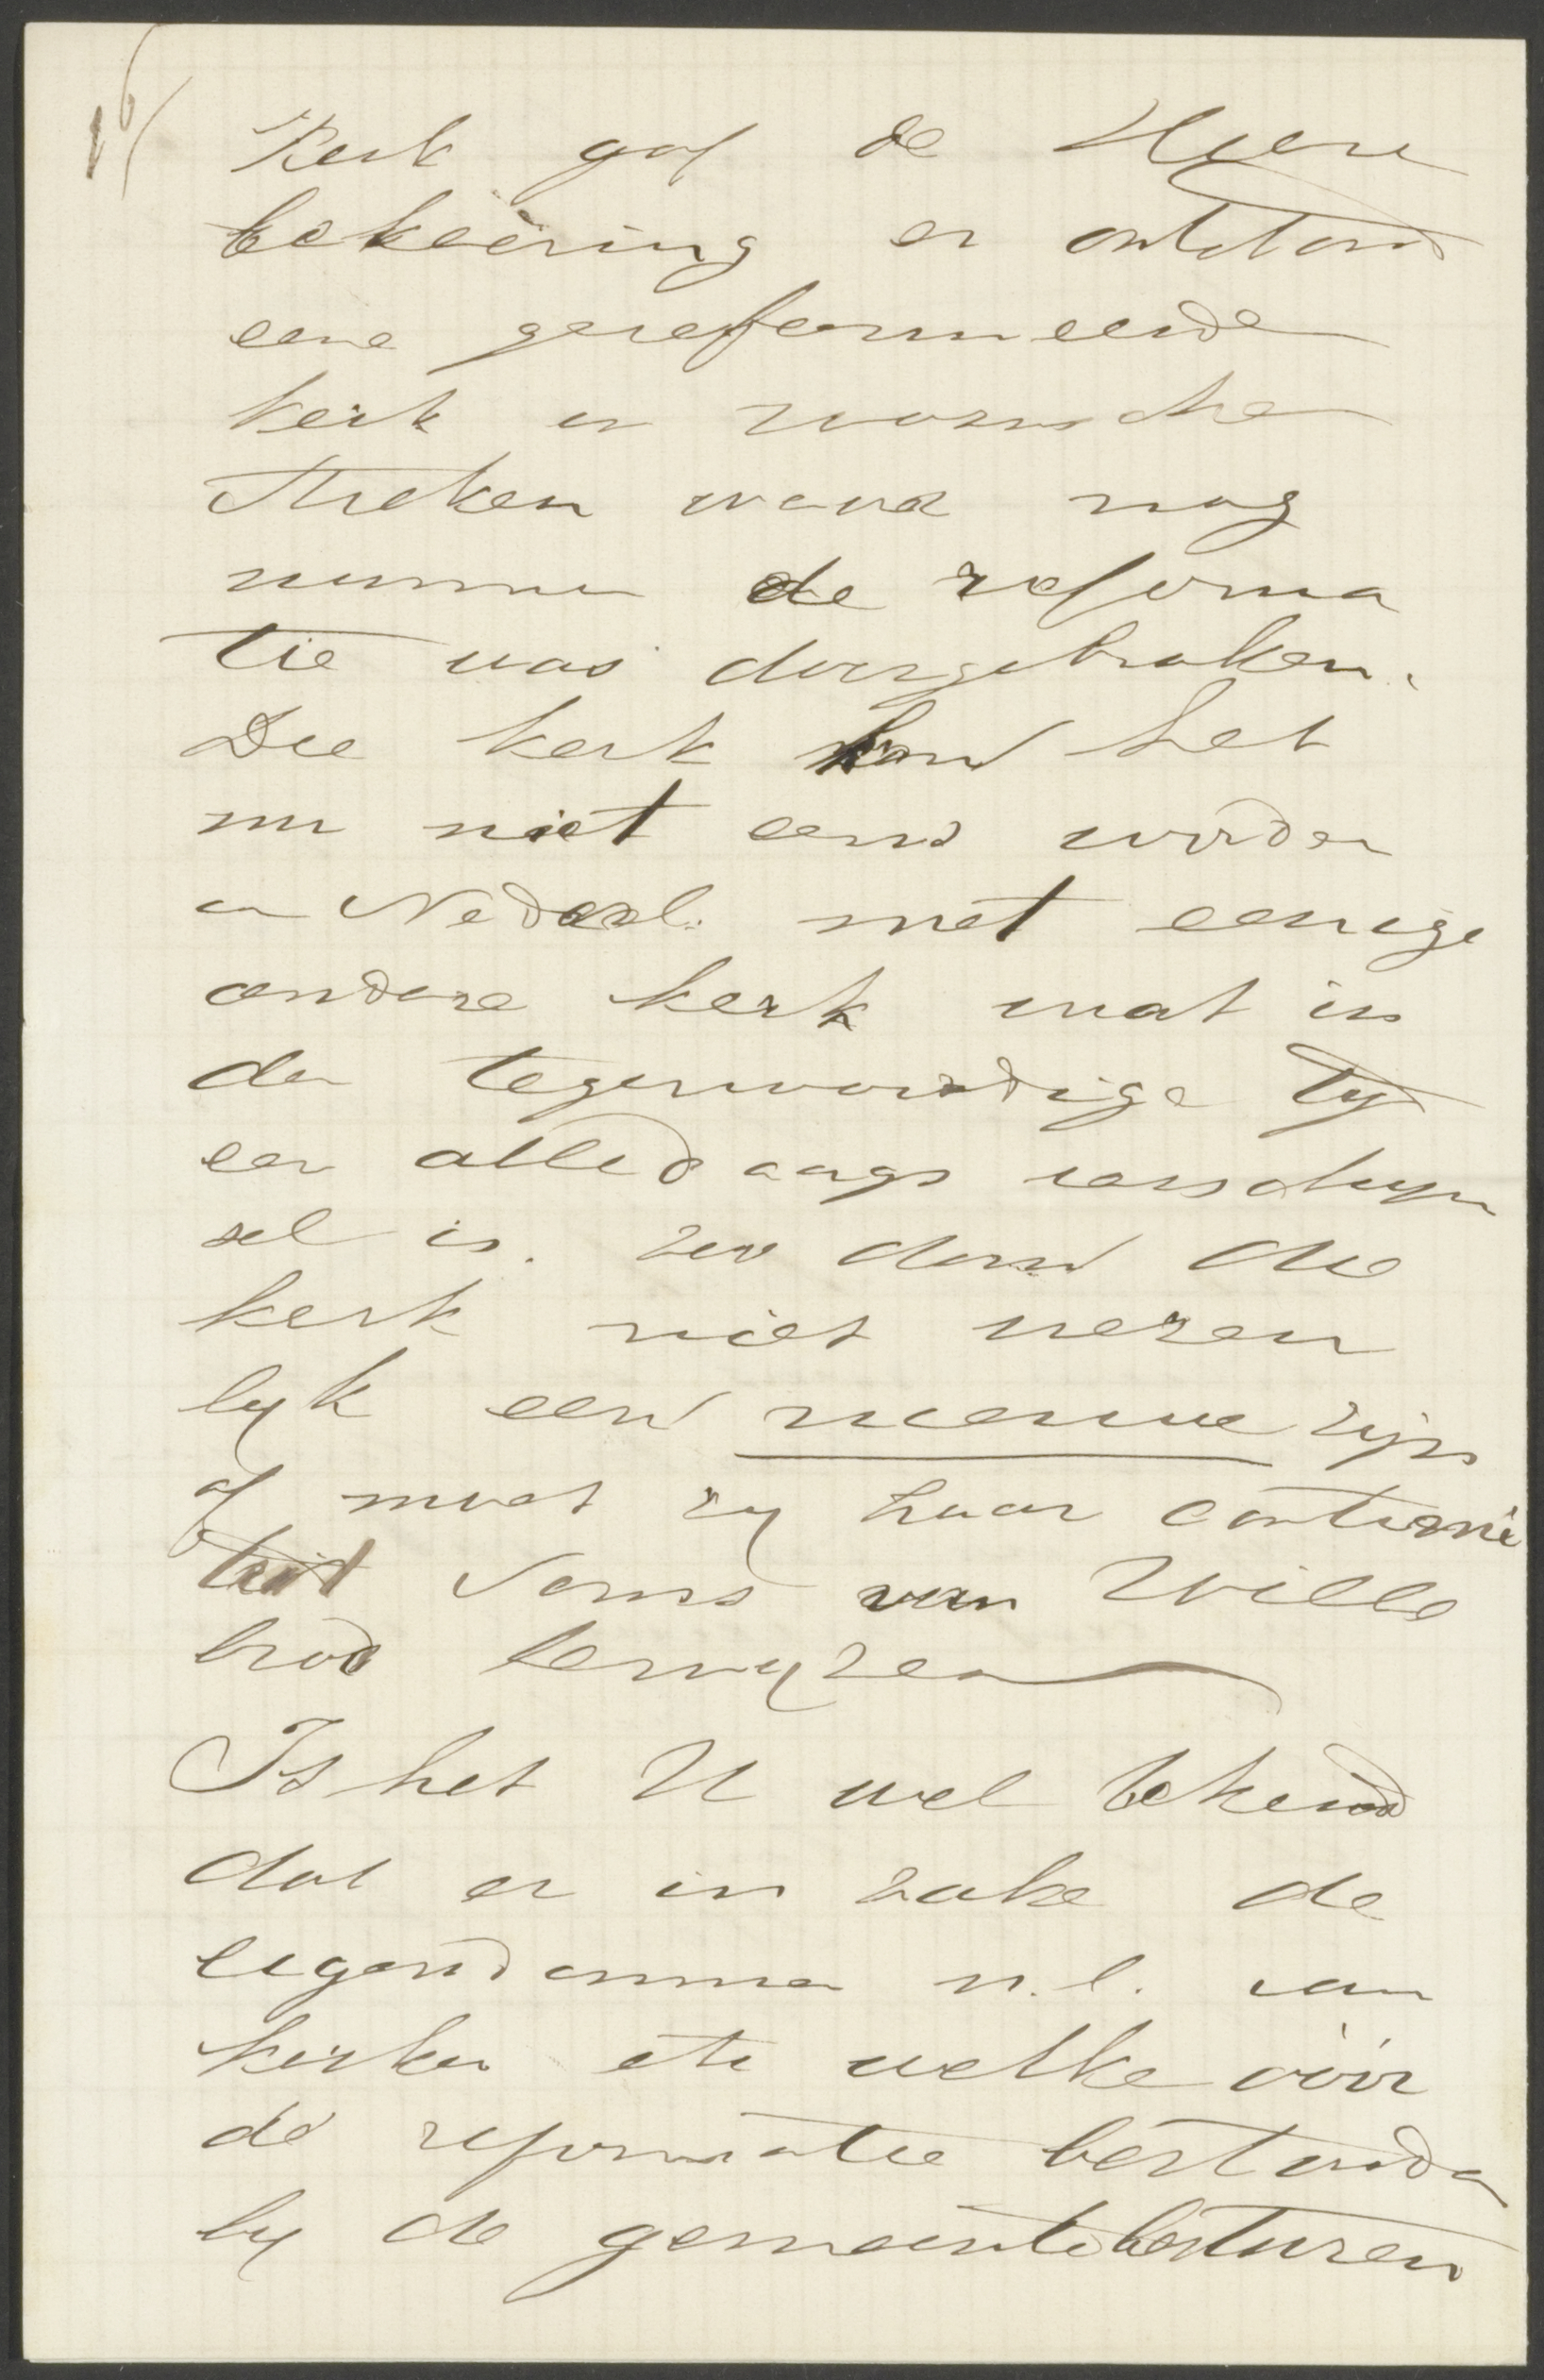 16/
Kerk gaf de Heere
bekeering en ontstond
eene gereformeerde
kerk in roomsche
streken waar nog
nimmer de reforma
tie was doorgebroken.
Die kerk kon het
nu niet eens worden
in Nederl. met eenige
andere kerk wat in
den tegenwoordige tyd
een alledaags verschyn
sel is. zou dan die
kerk niet wezen
lyk een nieuwe zijn
of moet zy haar continuï
teit soms van Wille
brod bewyzen
Is het U wel bekend
dat er in zake de
eigendommen n.l. van
kerken etc welke vóór
de reformatie bestonden
by de gemeentebesturen